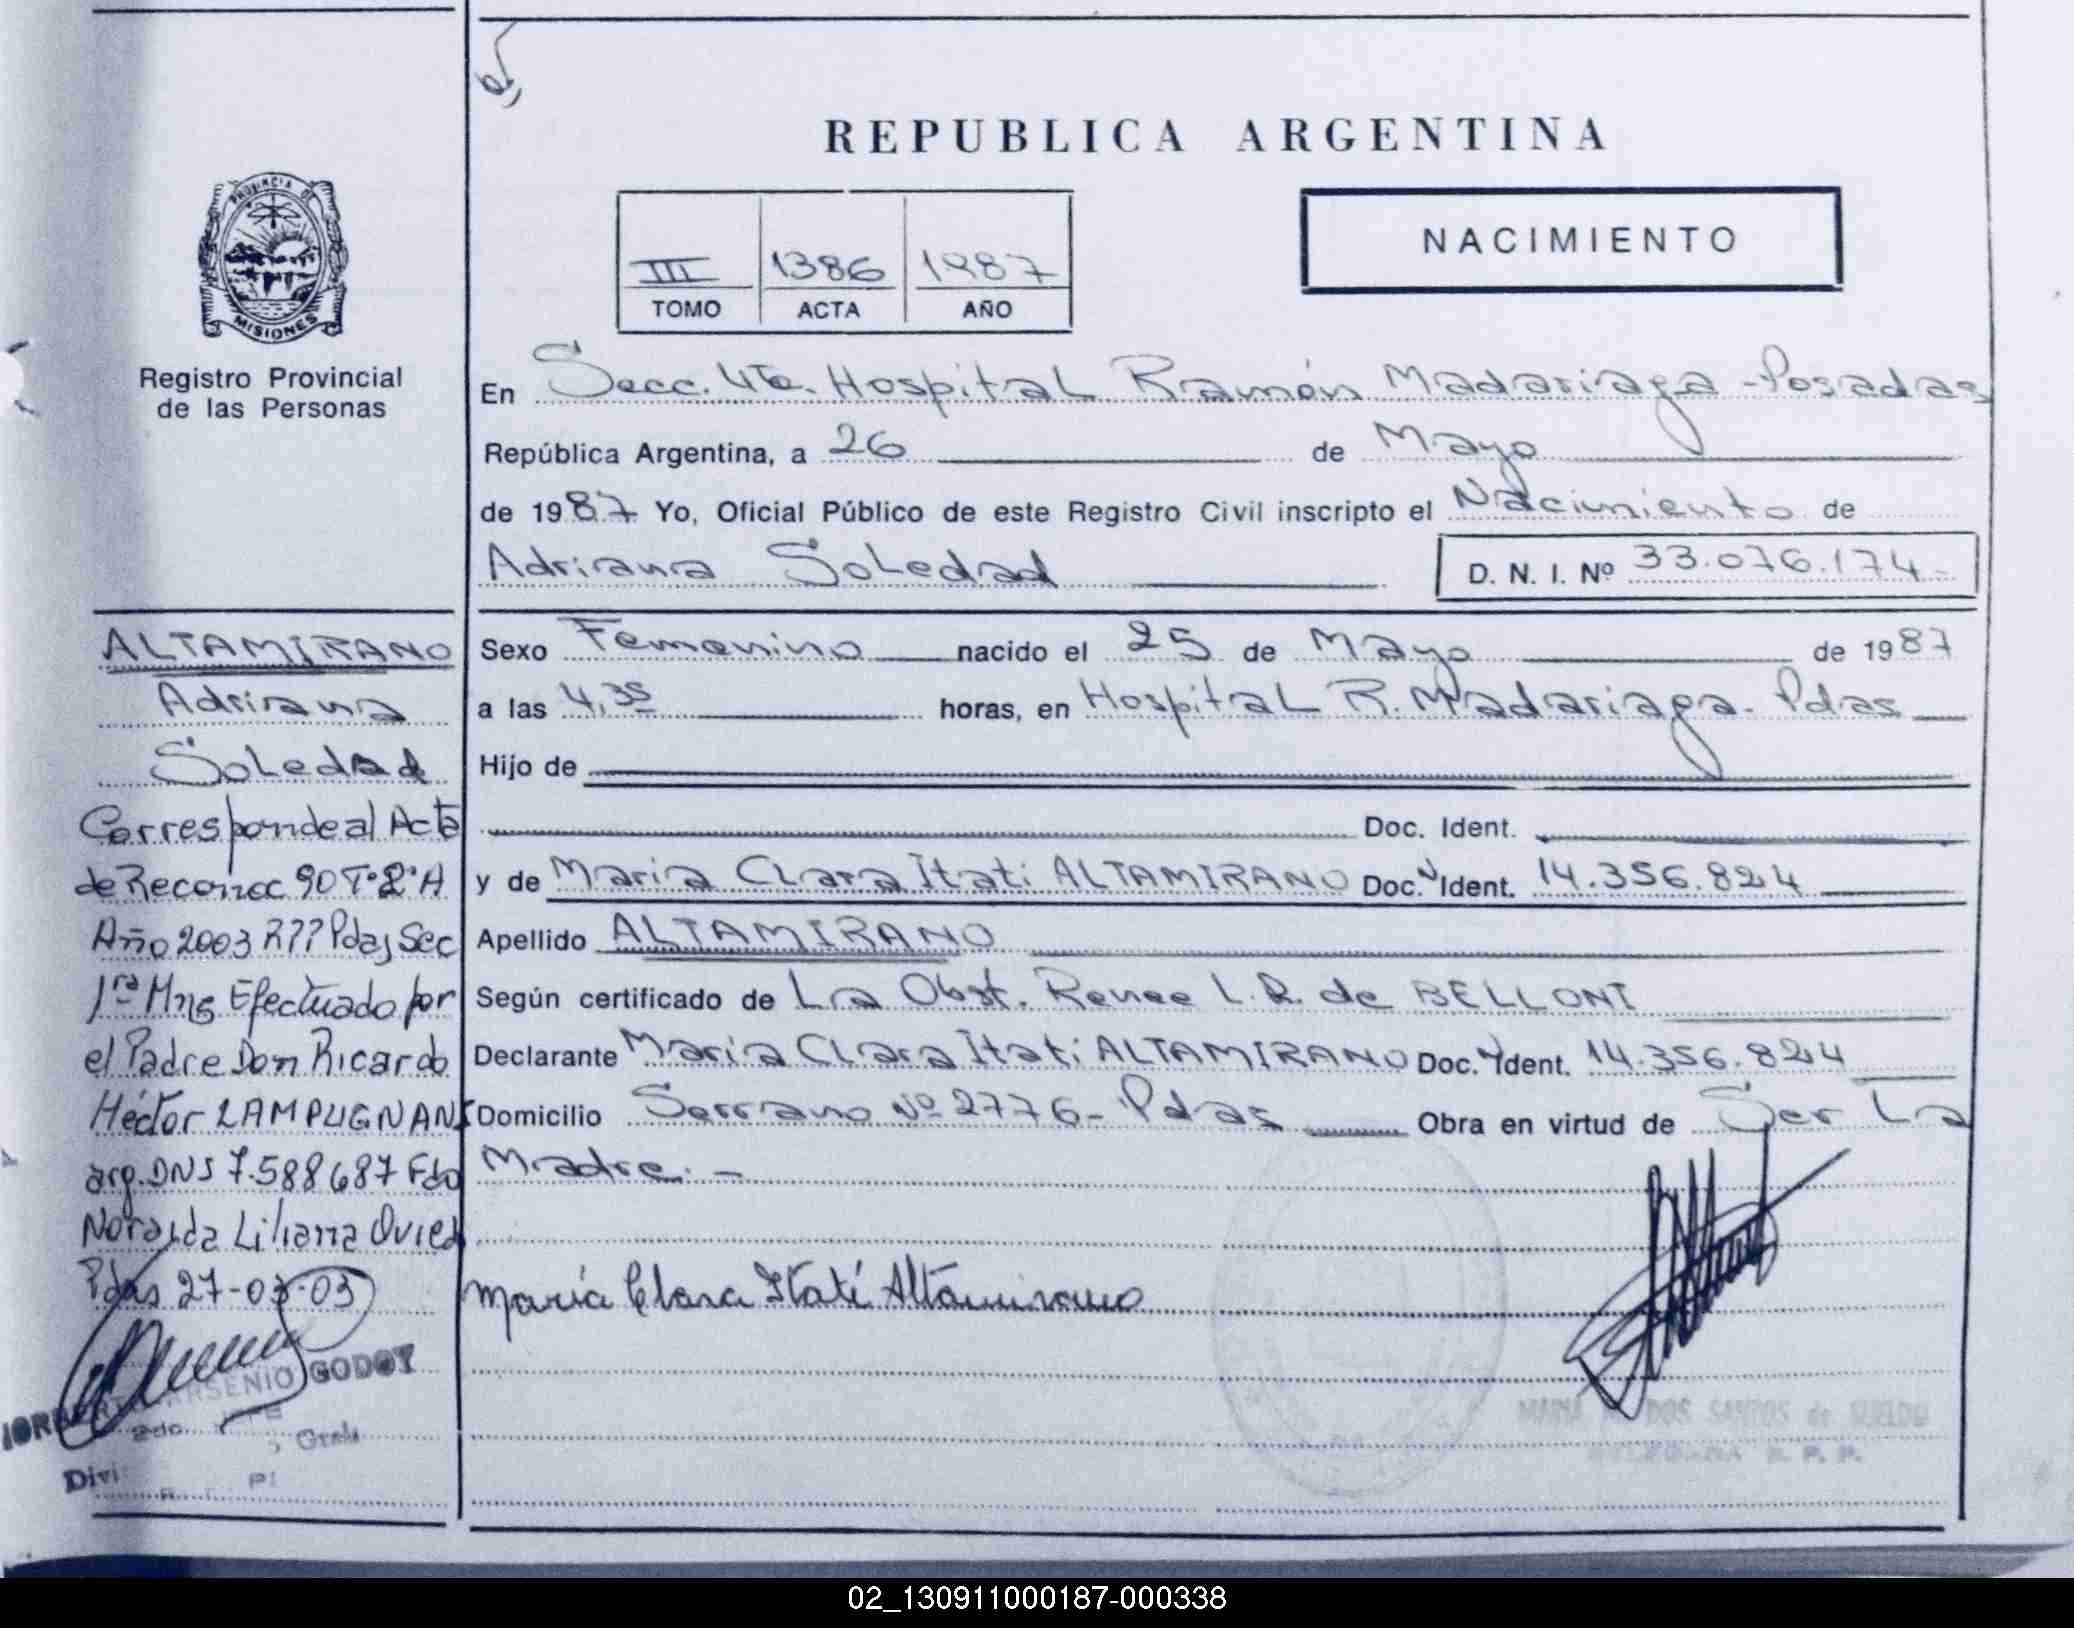 REPUBLICA ARGENTINA
PROVINCIA DE
MISIONES
Registro Provincial
de las Personas
III 1386 1987
TOMO ACTA AÑO
NACIMIENTO
En Secc. 4ta. Hospital Ramón Madariaga - Posadas
República Argentina, a 26 de Mayo
de 1987 Yo, Oficial Público de este Registro Civil inscripto el Nacimiento de
Adriana Soledad D. N. I. Nº 33.076.174-
Sexo Femenino nacido el 25 de Mayo de 1987
a las 4,35 horas, en Hospital R. Madariaga. Pdas
Hijo de
Doc. Ident.
y de Maria Clara Itati ALTAMIRANO Doc. Ident. 14.356.824
Apellido ALTAMIRANO
Según certificado de La Obst. Renee L. R. de BELLONI
Declarante Maria Clara Itati ALTAMIRANO Doc. Ident. 14.356.824
Domicilio Serrano Nº 2776- Pdas Obra en virtud de Ser La
Madre.-
María Clara Itatí Altamirano
MARIA DOS SANTOS de
R. P. P.
ALTAMIRANO
Adriana
Soledad
Corresponde al Acta
de Reconoc 90 Tº 2º A
Año 2003 Pdas Sec
1ra Mns Efectuado por
el Padre Don Ricardo
Héctor LAMPUGNANI
arg. DNI 7.588687 Fdo
Noraida Liliana Ovied
Pdas 27-03-03
ARSENIO GODOY
2do.
Grals
Divi
02_130911000187-000338